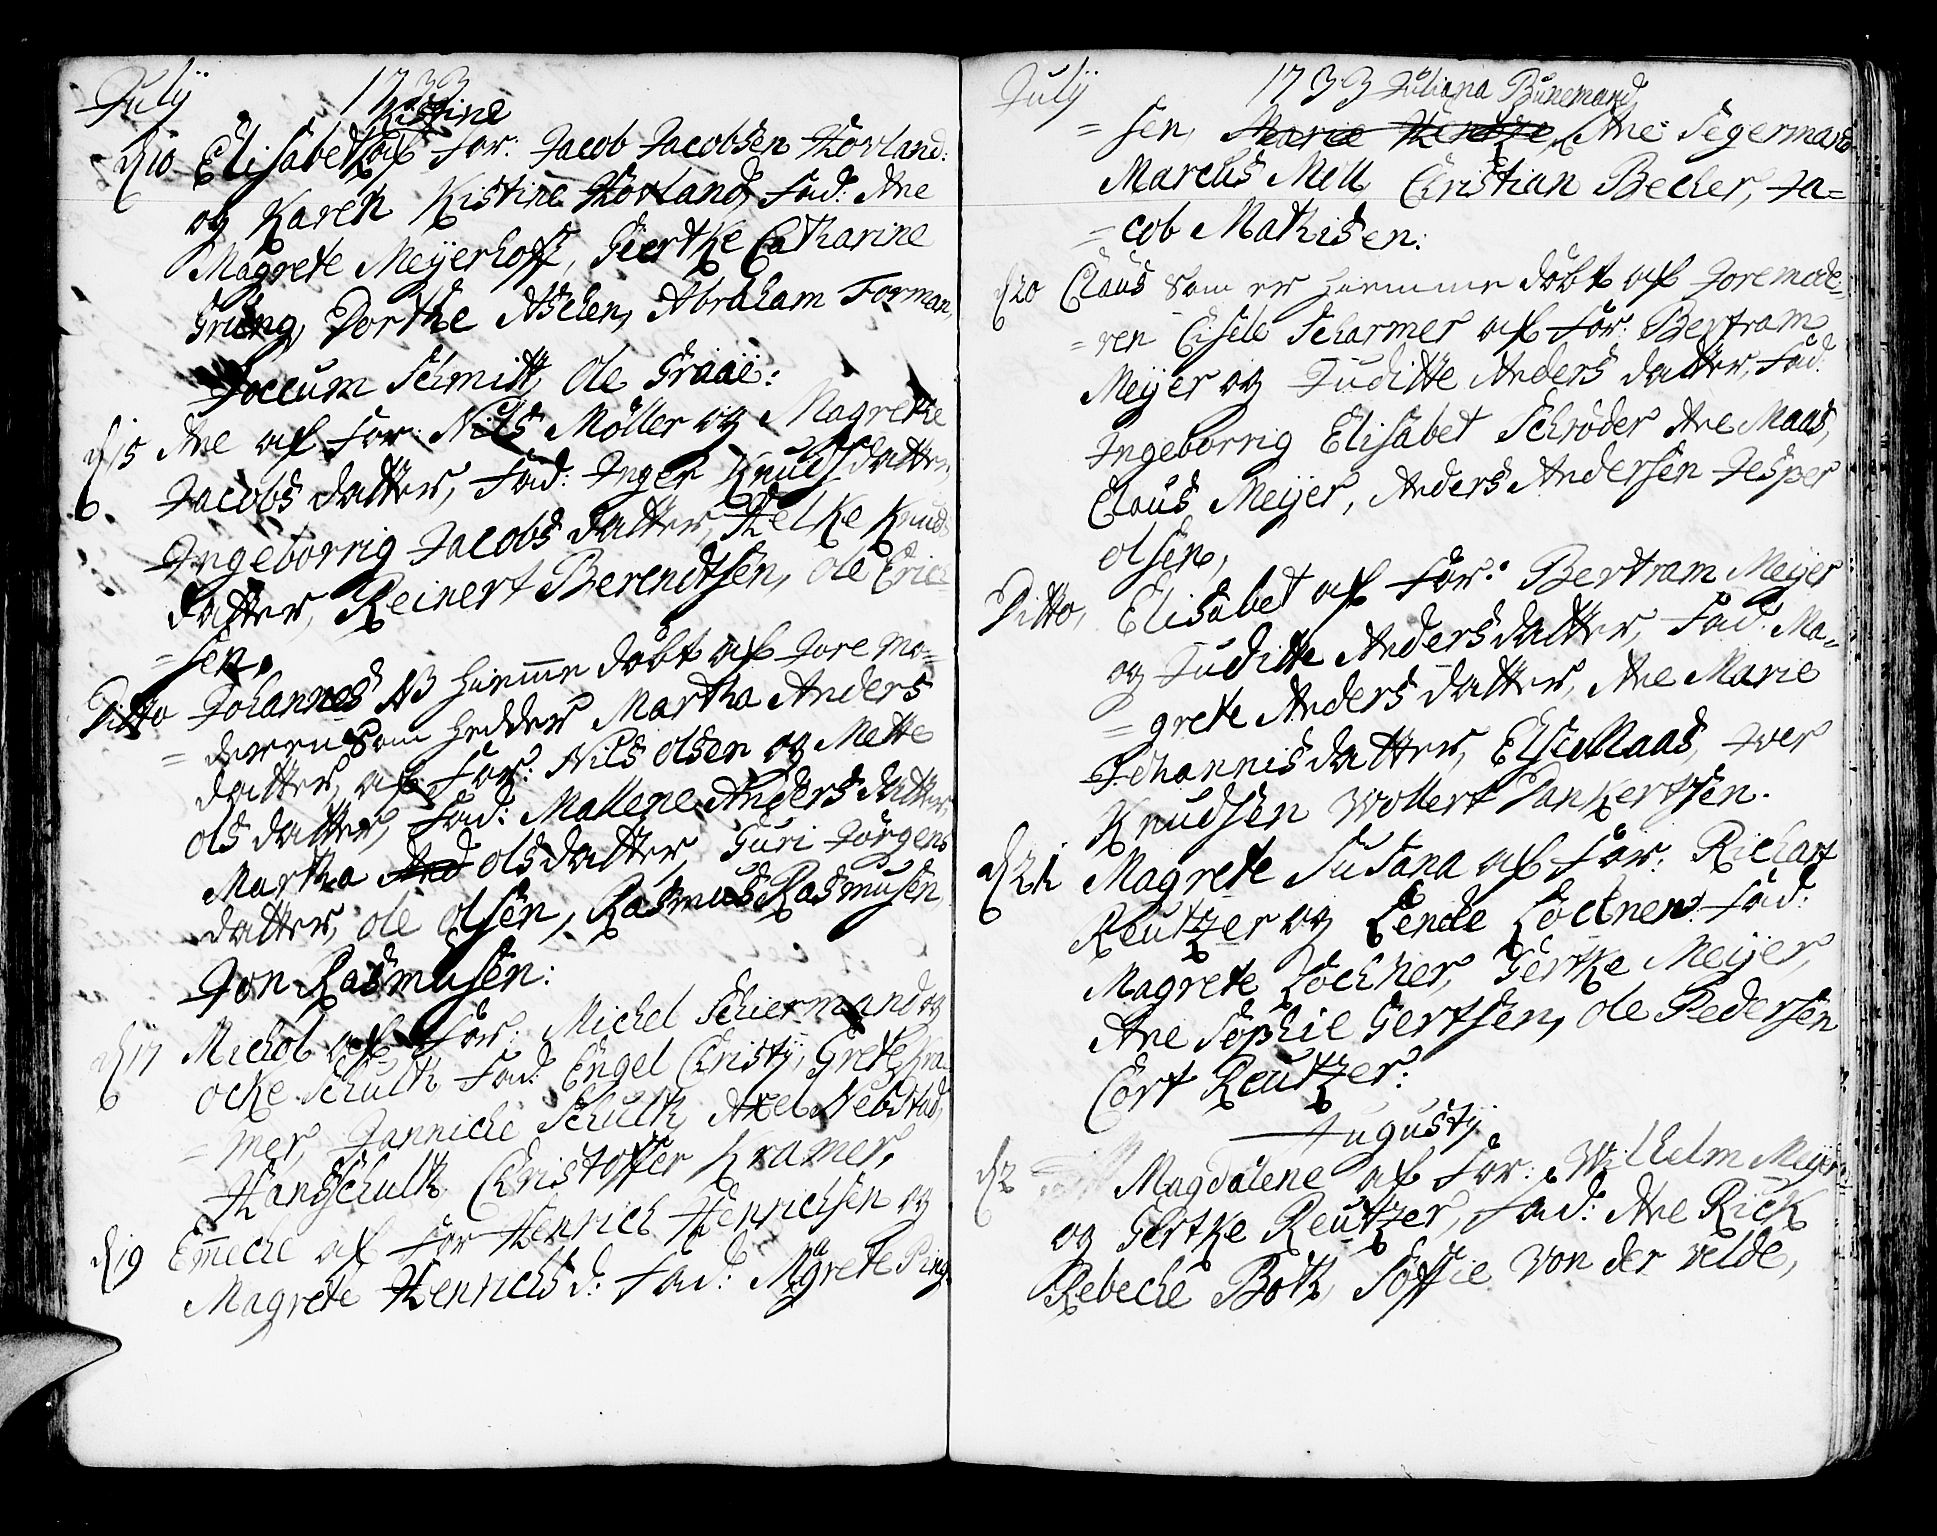 July 1733
Kistine
d 10 Elisabet af For: Jacob Jacobsen Hovland:
og Karen Kistine Hovland, Fad: Ane
Magrete Meÿerhoff, Giertke Catharine
Grüng, Dorthe Aschen, Abraham Forman,
Joccum Schmitt, Ole Graae:
d 15 Ane af For: Nils Möller og Magrethe
Jacobs datter, Fad: Inger Knuds datter,
Ingeborrig Jacobs datter, Helke Knuds
datter, Reinert Berendtsen, Ole Erich
=sen.
Ditto Johannes NB hiemme döbt af Jore mo=
=deren som hedder Martha Anders
datter, af For: Nils Olsen og Mette
Ols datter, Fad: Mallene Anders datter,
Martha And Olsdatter, Guri Jörgens
datter, Ole Olsen, Rasmus Rasmusen,
Jon Rasmusen:
d 17 Michel af For: Michel Schiermand og
Ocke Schult, Fad: Engel Christÿ, Grete Kra
=mer, Jannicke Schult, Axel Nebstad,
Hans Schult, Christoffer Kramer,
d 19 Emeche af For Henrich Henrichsen og
Magrete Henrichs d: Fad: Magrete Ping
July 1733 Juliana Bunemand,
=sen, Marie Hentze, Ane Segermand
Marcus Mell, Christian Becher, Ja=
=cob Mathisen:
d 20 Claus som er hiemme döbt af Joremode=
=ren Cisele Scharmer af For: Bertram
Meÿer og Juditte Anders datter, Fad:
Ingeborrig Elisabet Schröder Ane Maas,
Claus Meÿer, Anders Andersen Jesper
Olsen,
Ditto, Elisabet af For: Bertram Meÿer
og Juditte Andersdatter, Fad: Ma=
=grete Anders datter, Ane Marie
Johannis datter, Else Maas, Iver
Knudsen Wollert Dankertsen.
d 21 Magrete Susana af For: Richart
Reutzer og Lende Loctner Fad:
Magrete Lochner, Gertke Meÿer,
Ane Sophie Gertsen, Ole Pedersen
Cort Reutzer:
Augustÿ
d 2 Magdalene af For: Wilhelm Meÿer
og Gertke Reutzer, Fad: Ane Rick
Rebeche Both, Soffie Von der velde,